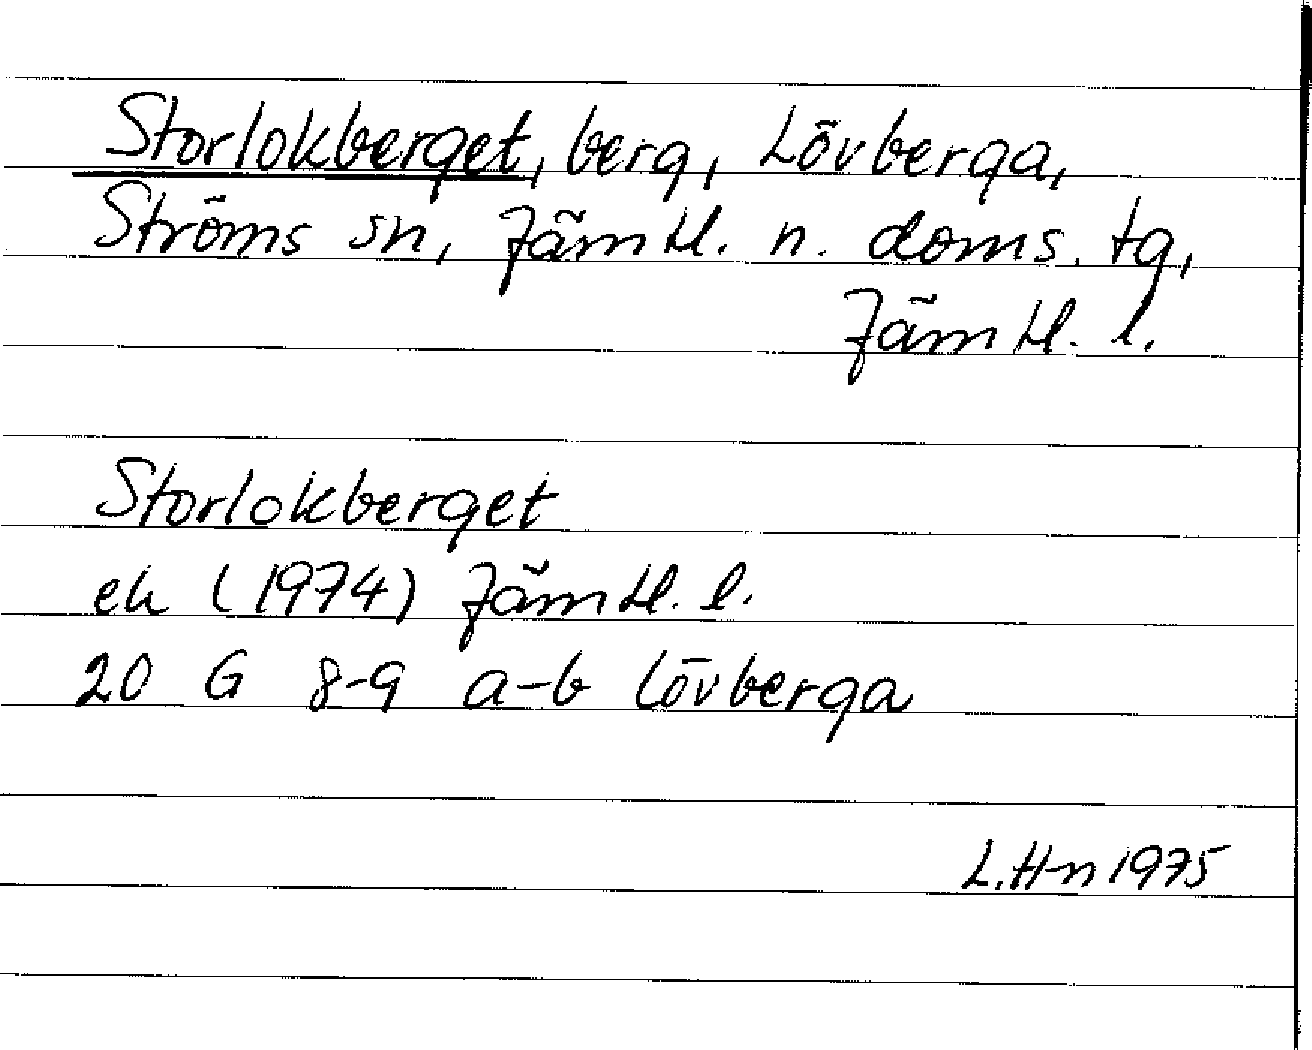 Storlokberget, berg, Lövberga,
Ströms sn, Jämtl. n. doms. tg,
Jämtl. l.
Storlokberget
ek (1974) Jämtl. l.
20 G 8-9 a-b Lövberga
L.H-n 1975